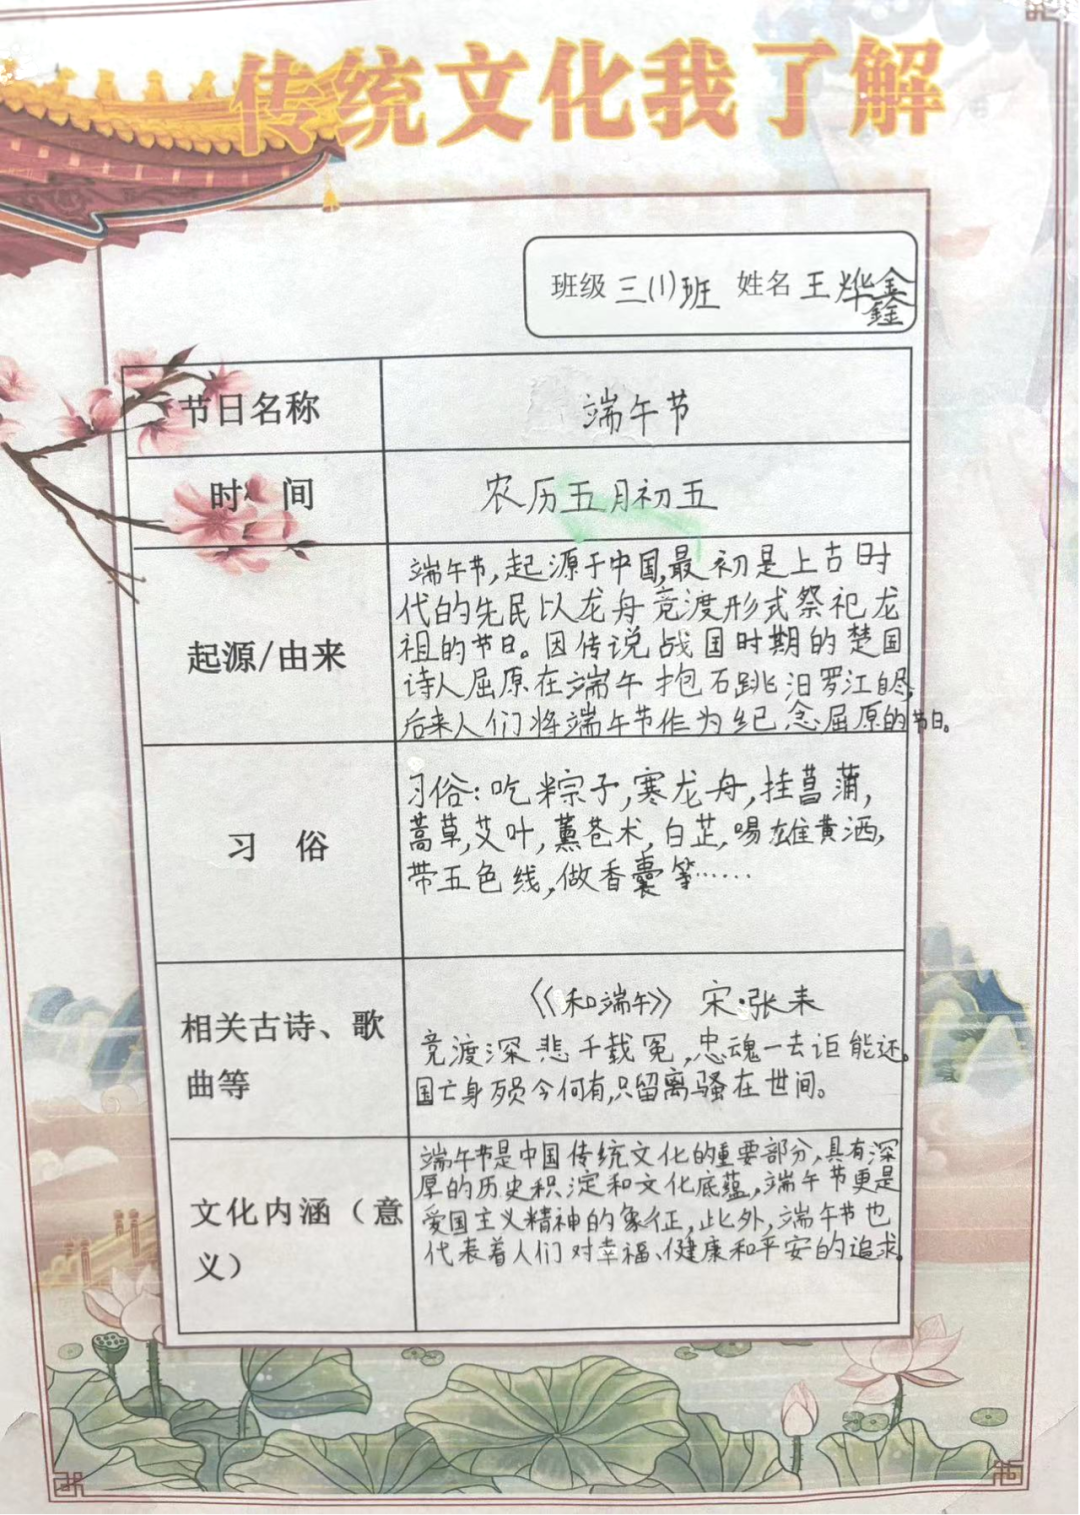 传统文化我了解
班级 三(1)班 姓名 王烨鑫
节日名称
端午节
时间
农历五月初五
起源/由来
端午节,起源于中国,最初是上古时
代的先民以龙舟竞渡形式祭祀龙
祖的节日。因传说战国时期的楚国
诗人屈原在端午抱石跳汨罗江自尽,
后来人们将端午节作为纪念屈原的节日。
习 俗
习俗:吃粽子,赛龙舟,挂菖蒲,
蒿草,艾叶,薰苍术,白芷,喝雄黄酒,
带五色线,做香囊等……
相关古诗、歌
曲等
《和端午》 宋·张耒
竞渡深悲千载冤,忠魂一去讵能还。
国亡身殒今何有,只留离骚在世间。
文化内涵(意
义)
端午节是中国传统文化的重要部分,具有深
厚的历史积淀和文化底蕴,端午节更是
爱国主义精神的象征,此外,端午节也
代表着人们对幸福、健康和平安的追求。